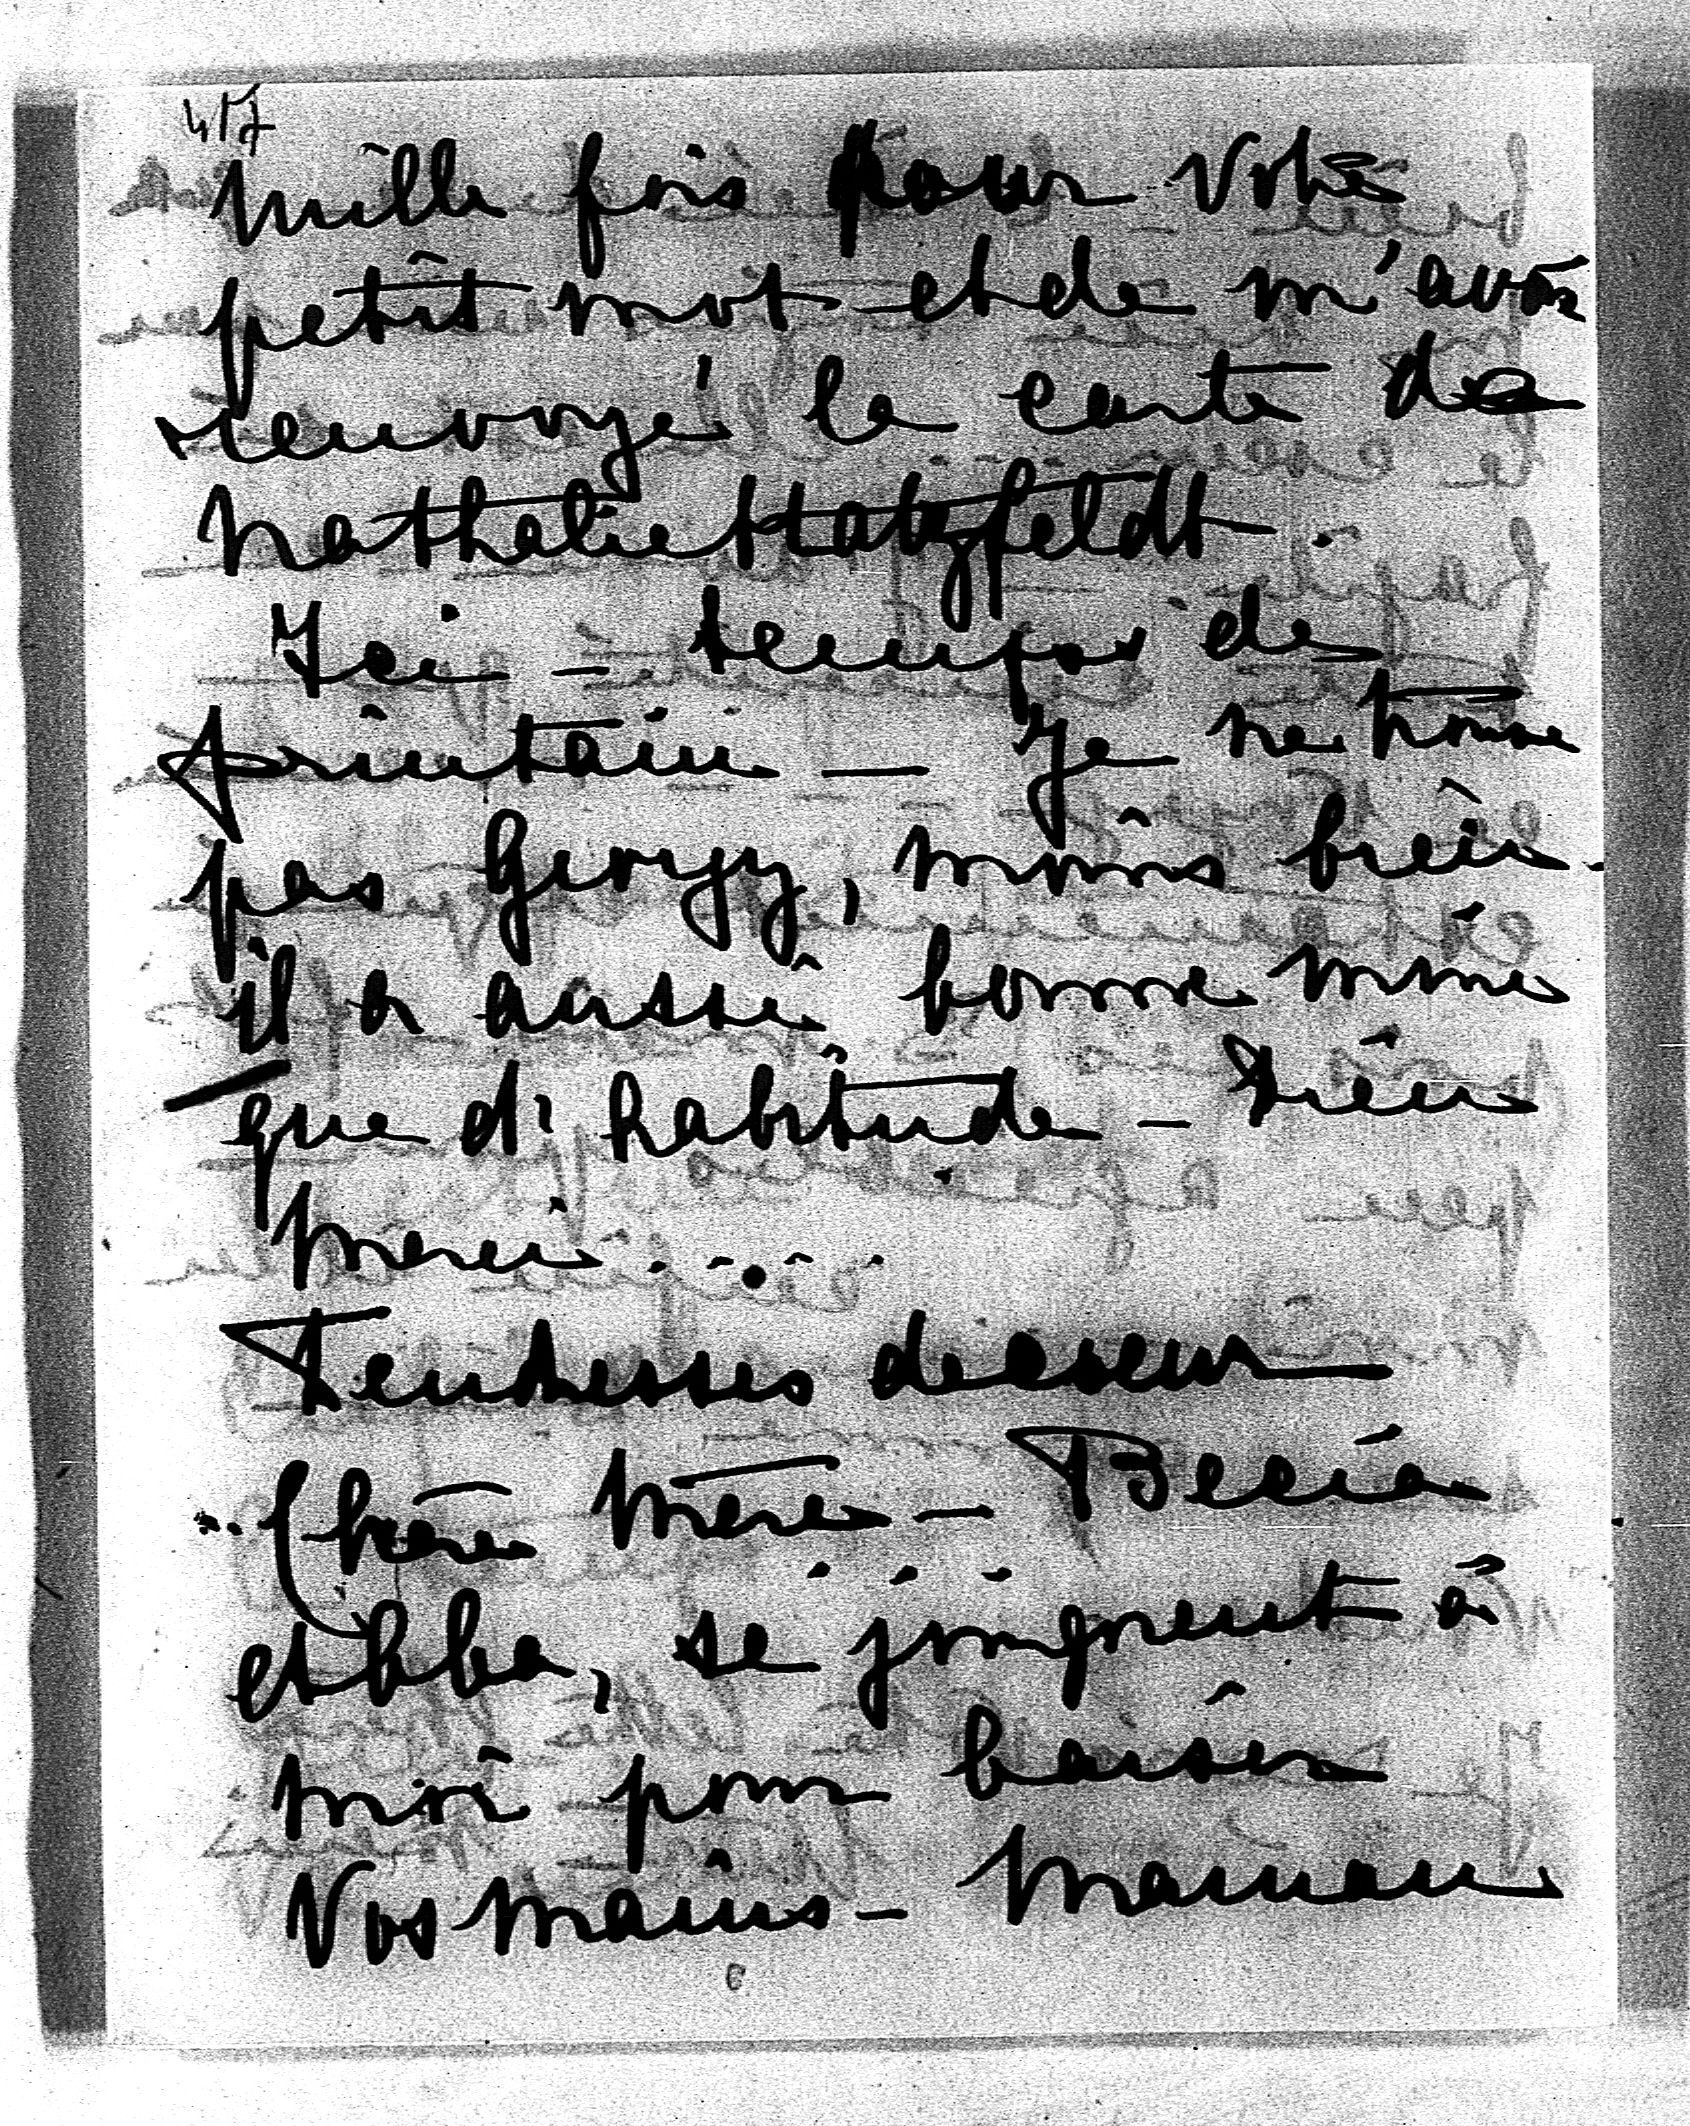 417
mille fois pour votre
petit mot et de m'avoir
renvoyé la carte de
Nathalie Hatzfeldt.
Ici - temps de
printain — Je ne trouve
pas Georgy, moins bien -
il a aussi bonne mine
que d'habitude - Dieu
merci . . . . .
Tendresses de coeur
Chère Mère -
et Bba, se joignent à
moi pour baiser
Vos mains - Maman